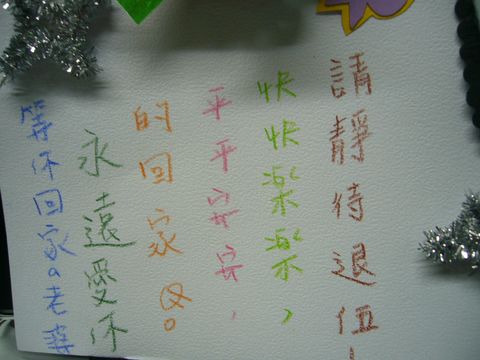 請靜待退伍!
快快樂樂,
平平安安,
的回家
永遠愛你
等你回家。老婆